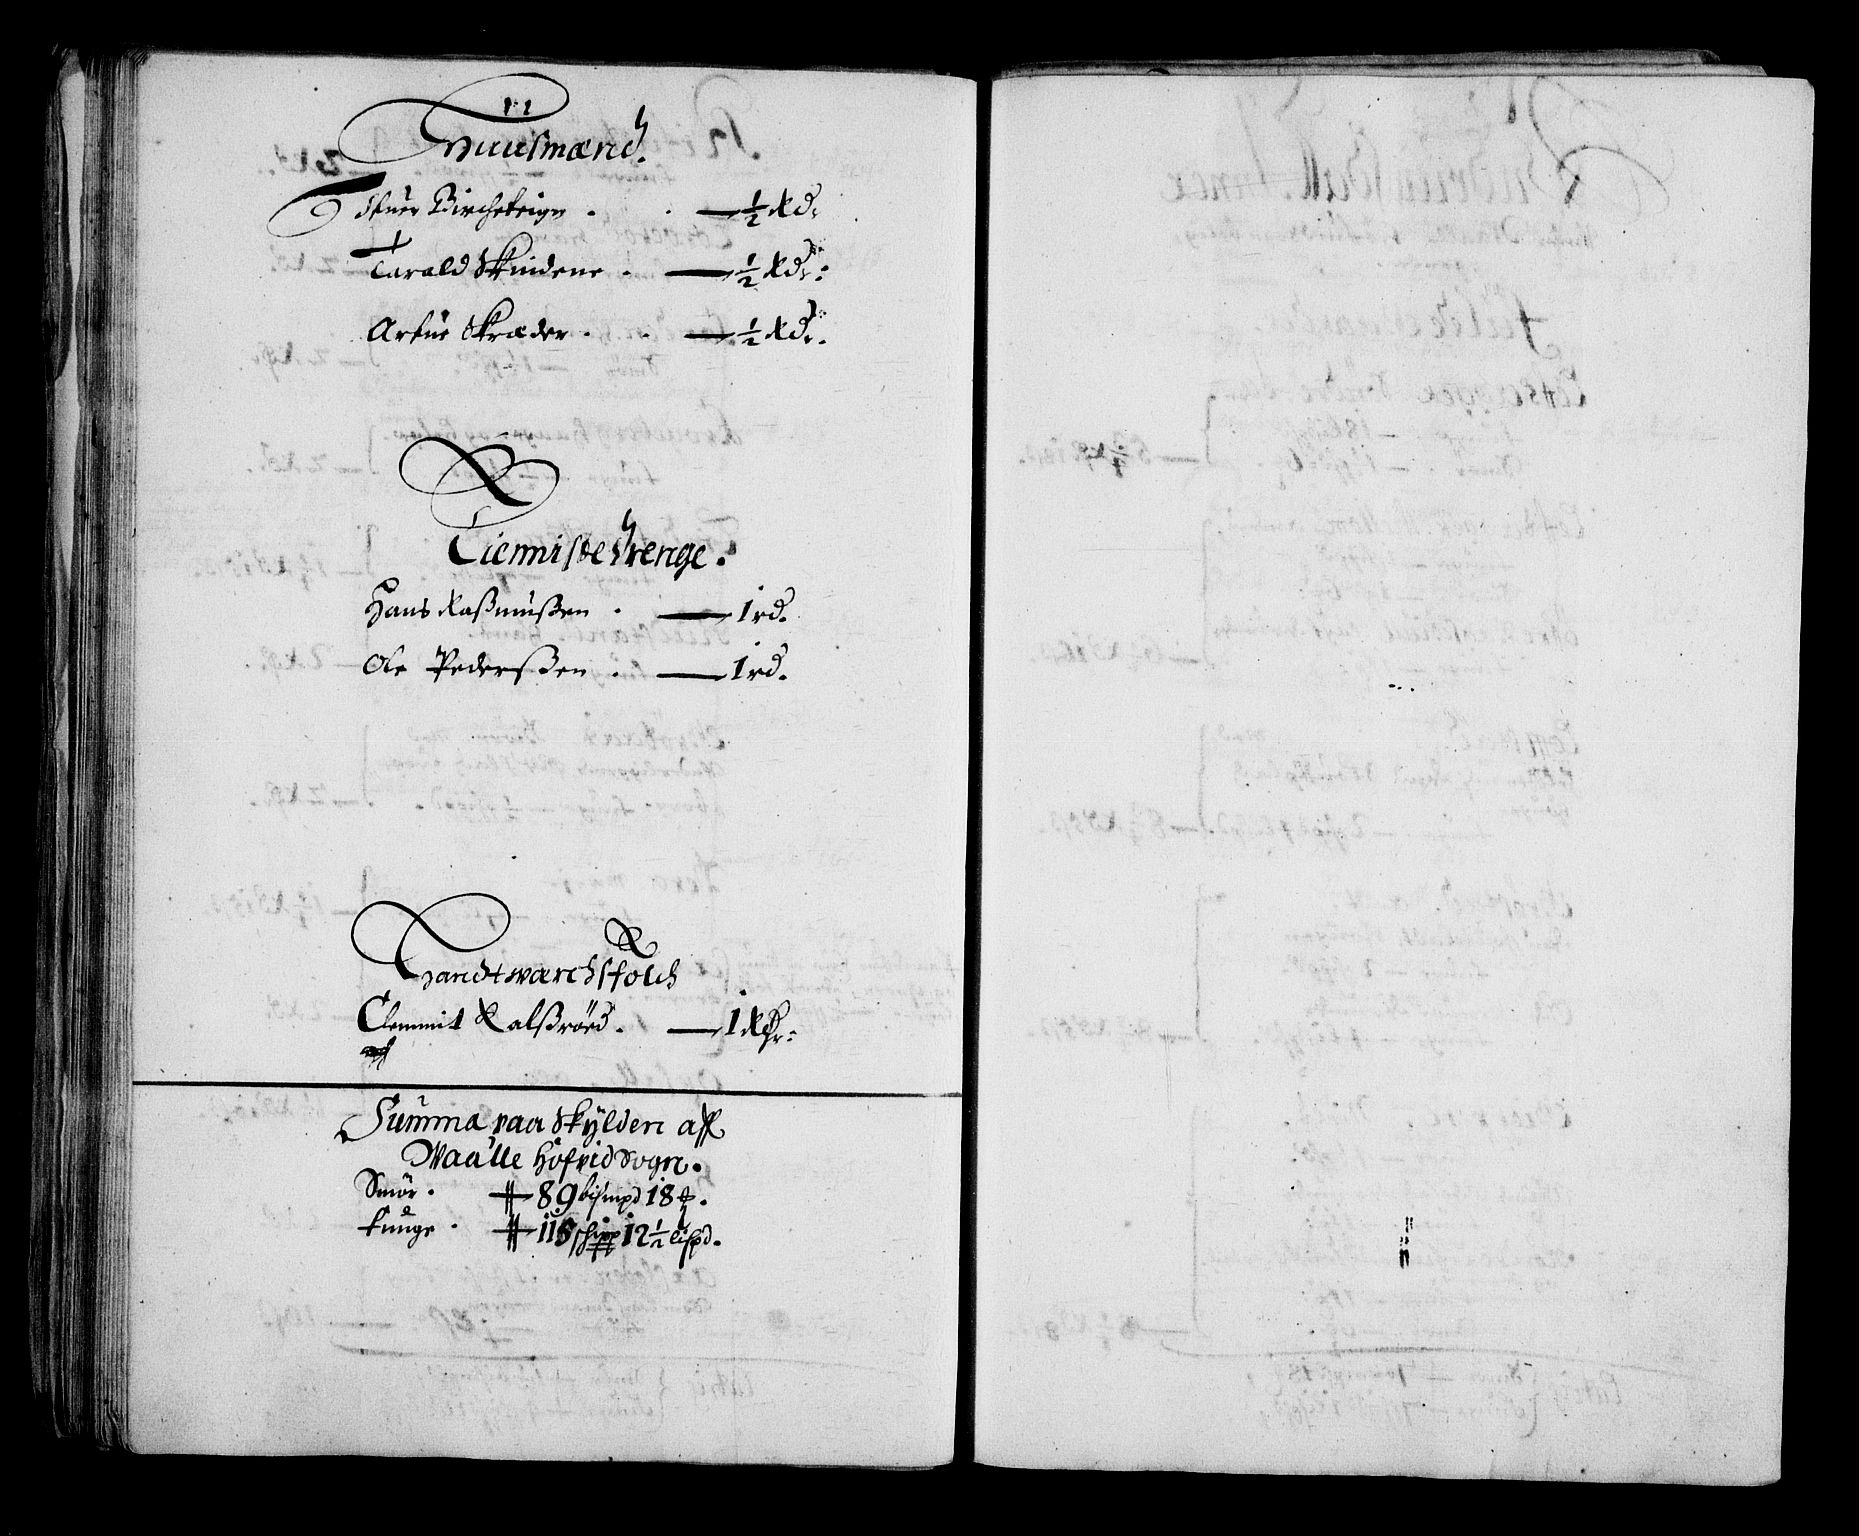 Huusmænd.
Isuer Bircheteign. — ½ Rd:
Tarald Skindene. — ½ Rdr:
Arfue Skræder. — ½ Rdr.
Tienniste Drenge.
Hans Rasmussen. — 1 rd.
Ole Pedersen. — 1 rd.
Handtwærchsfolch
Clemmit Kalsrød. — 1 Rdr:
Summa paa Skÿlden aff
Waalle Hofvid Sogn.
Smör. 89 bismpd 18
tunge. 115 schipp 12½ lispd.